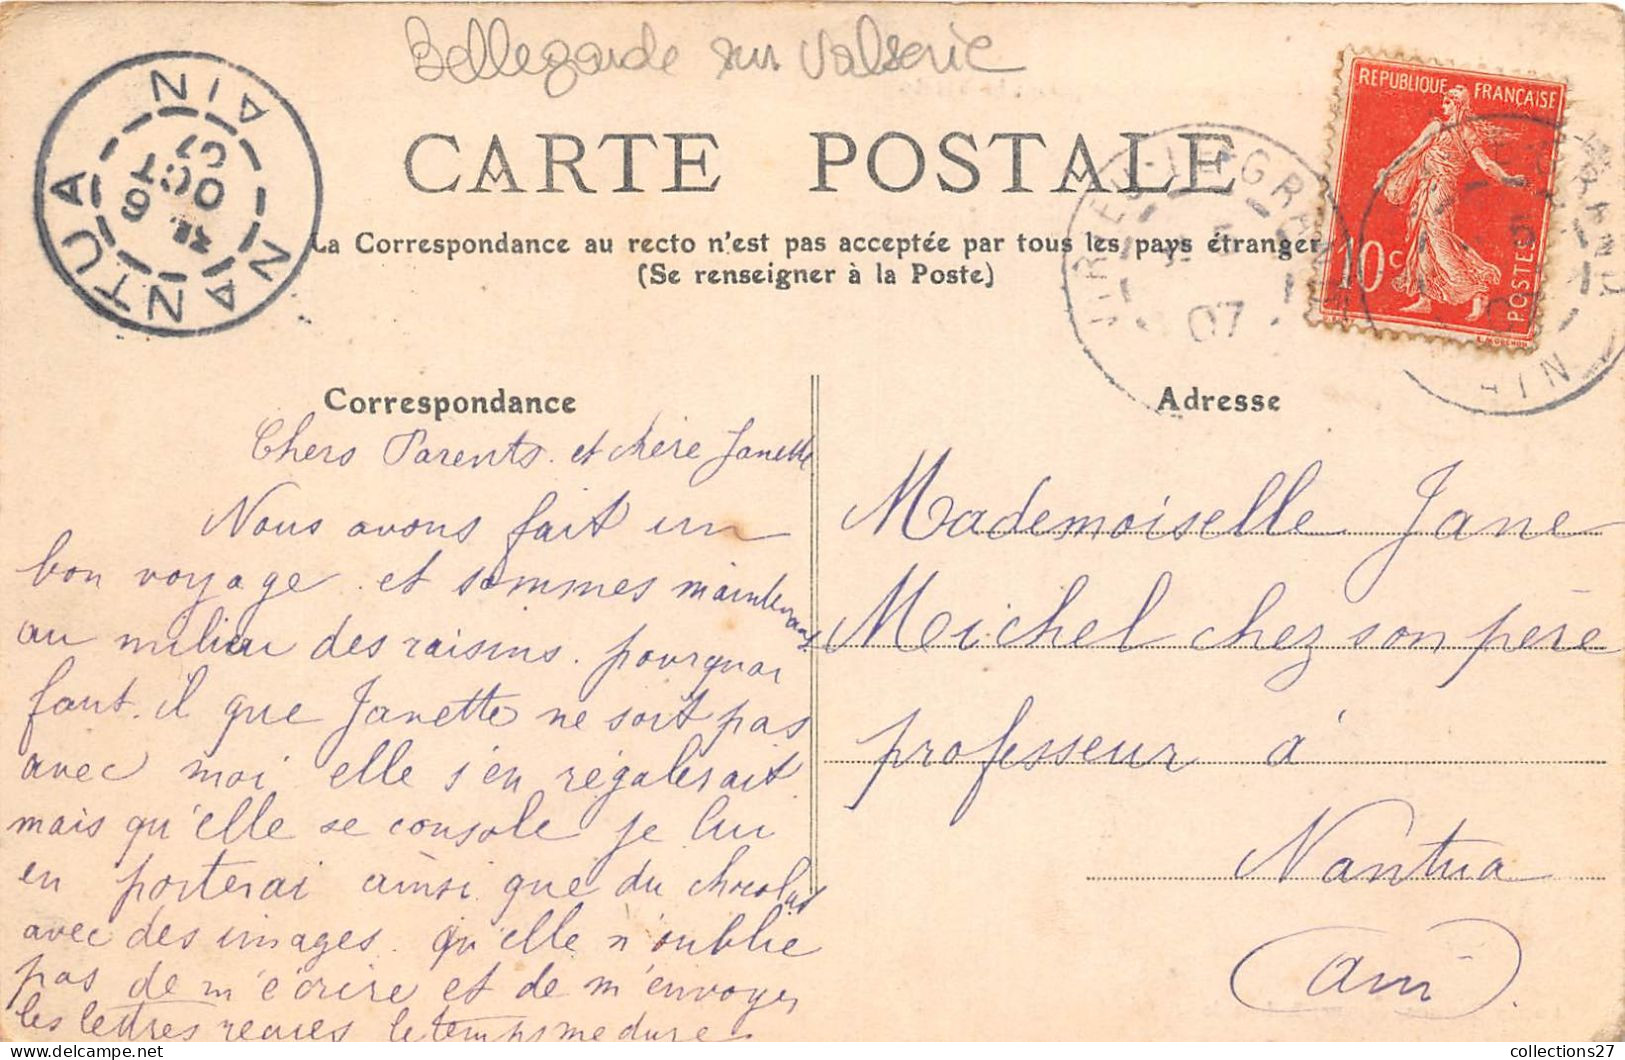 Bellegarde sur Valserie
CARTE POSTALE
La Correspondance au recto n'est pas acceptée par tous les pays étranger
(Se renseigner à la Poste)
NANTUA
AIN
6
OCT
07
VIRIEU-LE-GRAND
AIN
07
REPUBLIQUE FRANÇAISE
10c
POSTES
Correspondance
Chers Parents et chère Janette
Nous avons fait un
bon voyage et sommes maintenant
au milieu des raisins. pourquoi
faut-il que Janette ne soit pas
avec moi elle s'en régalerait
mais qu'elle se console je lui
en porterai ainsi que du chocolat
avec des images. qu'elle n'oublie
pas de m'écrire et de m'envoyer
les lettres recues le temps me dure.
Adresse
Mademoiselle Jane
Michel chez son père
professeur à
Nantua
(Ain)
collections27